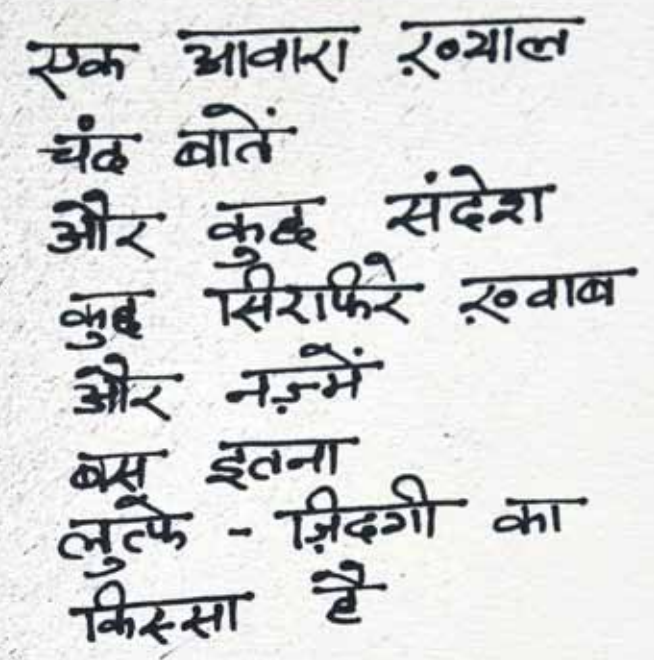 एक आवारा ख़्याल
चंद बातें
और कुछ संदेश
कुछ सिराफिरे ख़्वाब
और नज़्में
बस इतना
लुत्फे - ज़िदगी का
किस्सा है